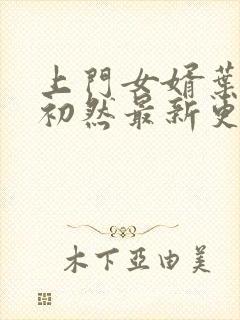 上門女婿葉
初然最新更
木下亞由美